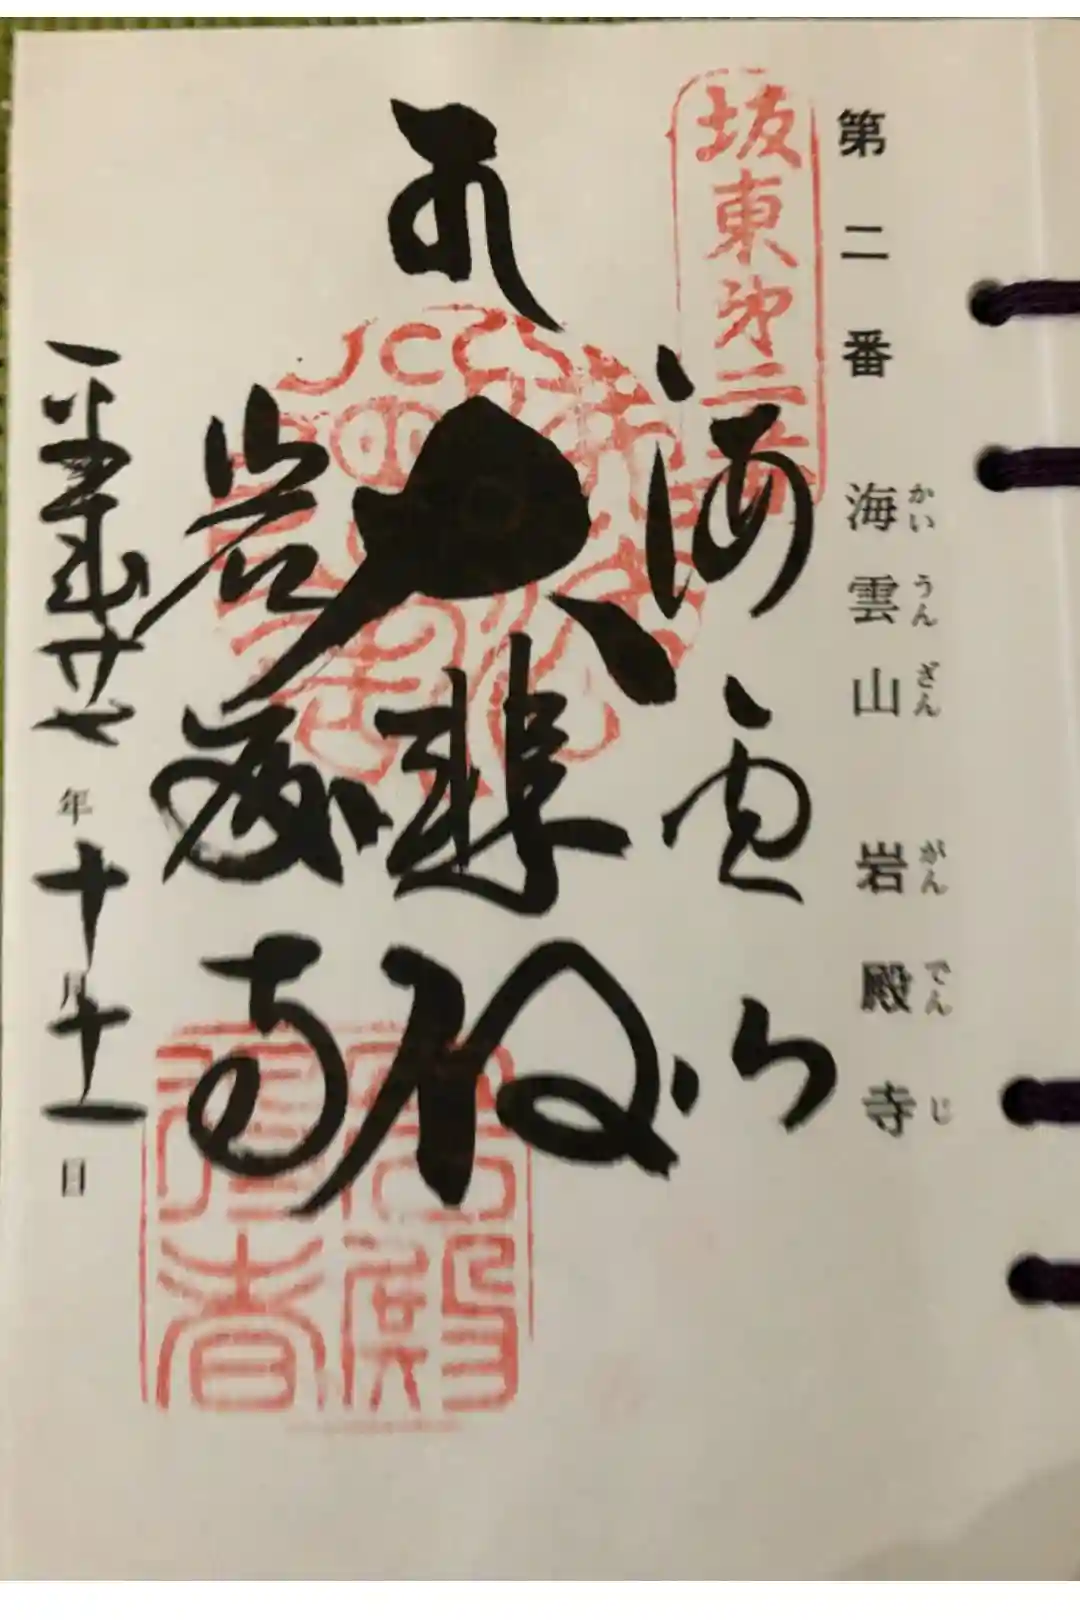 第二番 海雲山 岩殿寺
かいうんざん がんでんじ
坂東第二番
海雲山
大悲殿
岩殿寺
平成廿七年十月十一日